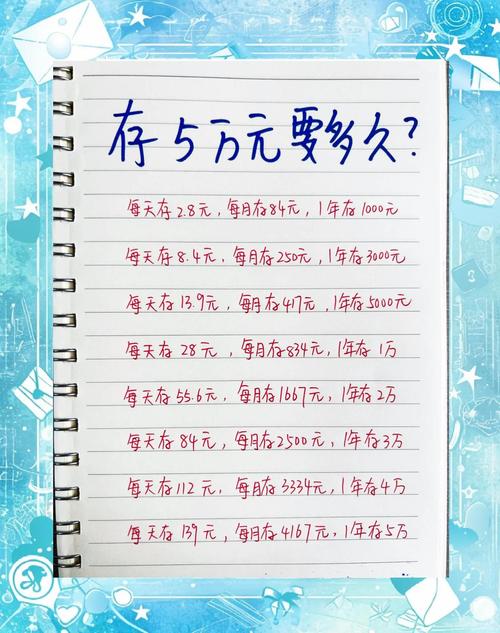 存5万元要多久?
每天存2.8元,每月存84元,1年存1000元
每天存8.4元,每月存250元,1年存3000元
每天存13.9元,每月存417元,1年存5000元
每天存28元,每月存834元,1年存1万
每天存55.6元,每月存1667元,1年存2万
每天存84元,每月存2500元,1年存3万
每天存112元,每月存3334元,1年存4万
每天存139元,每月存4167元,1年存5万